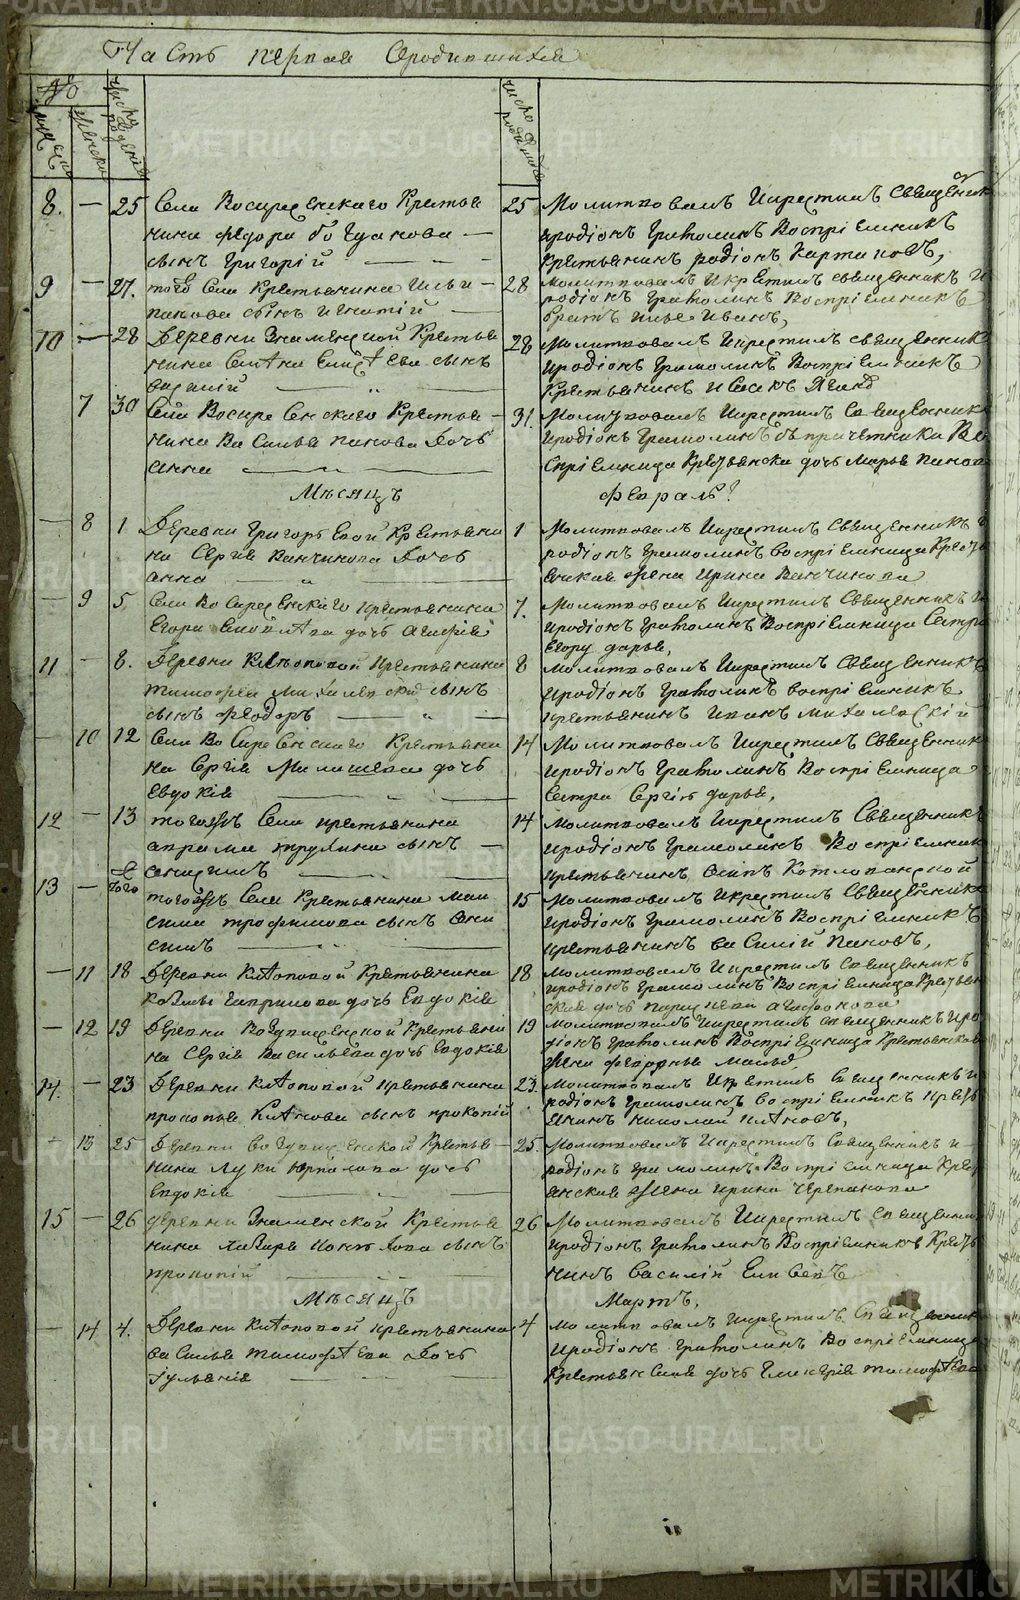 Часть первая Ородившихся
№
мужеска
женска
число рождения
число родинъ
8. — 25 Села Воскресенскаго Крестья
нина Федора Богданова —
сынъ Григорій
25 Молитвовалъ Икрестилъ Священникъ
иродіонъ Грамолинъ Воспріемникъ
Крестьянинъ родіонъ Картаповъ,
9 — 27. того Села Крестьянина Ильи —
панова сынъ Игнатій
28 молитвовалъ Икрестилъ священникъ и
родіонъ Грамолинъ Воспріемникъ
братъ илье Иванъ,
10 — 28 Деревни Знаменской Крестья
нина
сынъ
василій
28 Молитвовалъ Икрестилъ священникъ
иродіонъ Грамолинъ Воспріемникъ
Крестьянинъ
7 30 Села Воскресенскаго Крестья —
нина Василья панова дочь
анна
31. Молитвовалъ Икрестилъ Священникъ
иродіонъ Грамолинъ бъ причетника Во
спріемница Крестьянска дочь Марья панов
Мѣсяцъ
Февраль?
— 8 1 Деревни Григорьевой Крестьяни
на Сергія Ванчикова дочь
анна
1 Молитвовалъ Икрестилъ Священникъ и
родіонъ Грамолинъ воспріемница Кресть
енская жена Ирина Ванчикова
— 9 5 Села Воскресенскаго крестьянина
Егора дочь агафія
7. Молитвовалъ Икрестилъ Священникъ
иродіонъ Грамолинъ Воспріемница Сестра
Егору дарья,
11 — 8. Деревни Клѣпоповой Крестьянина
тимофея Михалевский сынъ
сынъ Феодоръ
8 молитвовалъ Икрестилъ Священникъ
иродіонъ Грамолинъ воспріемникъ
крестьянинъ иванъ михалевскій
— 10 12 Села Воскресенскаго Крестьяни
на Сергія Милишева дочь
Евдокія
14 Молитвовалъ Икрестилъ Священник
иродіонъ Грамолинъ Воспріемница
Сестра Сергію дарья,
12 — 13 тогожъ Села крестьянина
аврама трулина сынъ —
анисимъ
14 молитвовалъ Икрестилъ Священникъ
иродіонъ Грамолинъ Воспріемник
крестьянинъ осипъ Котловановской
13 — Того тогожъ Села Крестьянина Мак
сима трофимова сынъ Они
симъ
15 Молитвовалъ Икрестилъ Священникъ
иродіонъ Грамолинъ Воспріемникъ
крестьянинъ Василій пановъ,
— 11 18 Деревни Клѣпоповой Крестьянина
козьмы гаврилова дочь Евдокія
18 Молитвовалъ Икрестилъ Священникъ
иродіонъ Грамолинъ Воспріемница Крестьян
ская дочь
— 12 19 Деревни Воздвиженской Крестьяни
на Сергія Васильева дочь Евдокія
19 молитвовалъ Икрестилъ священникъ иро
діонъ Грамолинъ Воспріемница Крестьянская
жена
14. — 23 Деревни Клѣпоповой крестьянина
прокопья Клѣнова сынъ прокопій
23. Молитвовалъ Икрестилъ Священникъ и
родіонъ Грамолинъ воспріемникъ кресть
янинъ николай клѣновъ,
— 13 25 Деревни Воздвиженской Крестья —
нина Луки Юрпалова дочь
Евдокія
25. Молитвовалъ Икрестилъ Священникъ и —
родіонъ Грамолинъ Воспріемница Крес
янская жена Ирина Черепанова
15 — 26 деревни Знаменской Крестья
нина лазаря сынъ
прокопій
26 Молитвовалъ Икрестилъ Священник
иродіонъ Грамолинъ Воспріемникъ Кресть
нинъ Василій Елисѣевъ
Мѣсяцъ
Мартъ,
— 14 4. Деревни Клѣпоповой крестьянина
Василья тимофѣева дочь
Гульянія
4 молитвовалъ Икрестилъ Священник
иродіонъ Грамолинъ Воспріемница
Крестьянская дочь Гликерія тимофѣева
METRIKI.GASO-URAL.RU